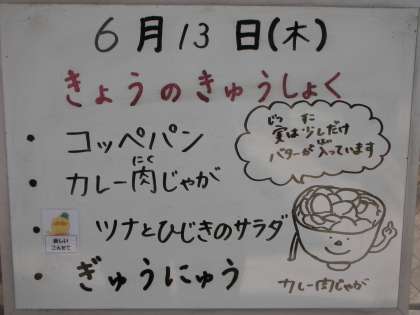 6月13日(木)
きょうのきゅうしょく
・ コッペパン
・ カレー肉じゃが
にく
・ ツナとひじきのサラダ
新しい
こんだて
・ ぎゅうにゅう
じつ すこ
実は少しだけ
はい
バターが入っています
カレー肉じゃが